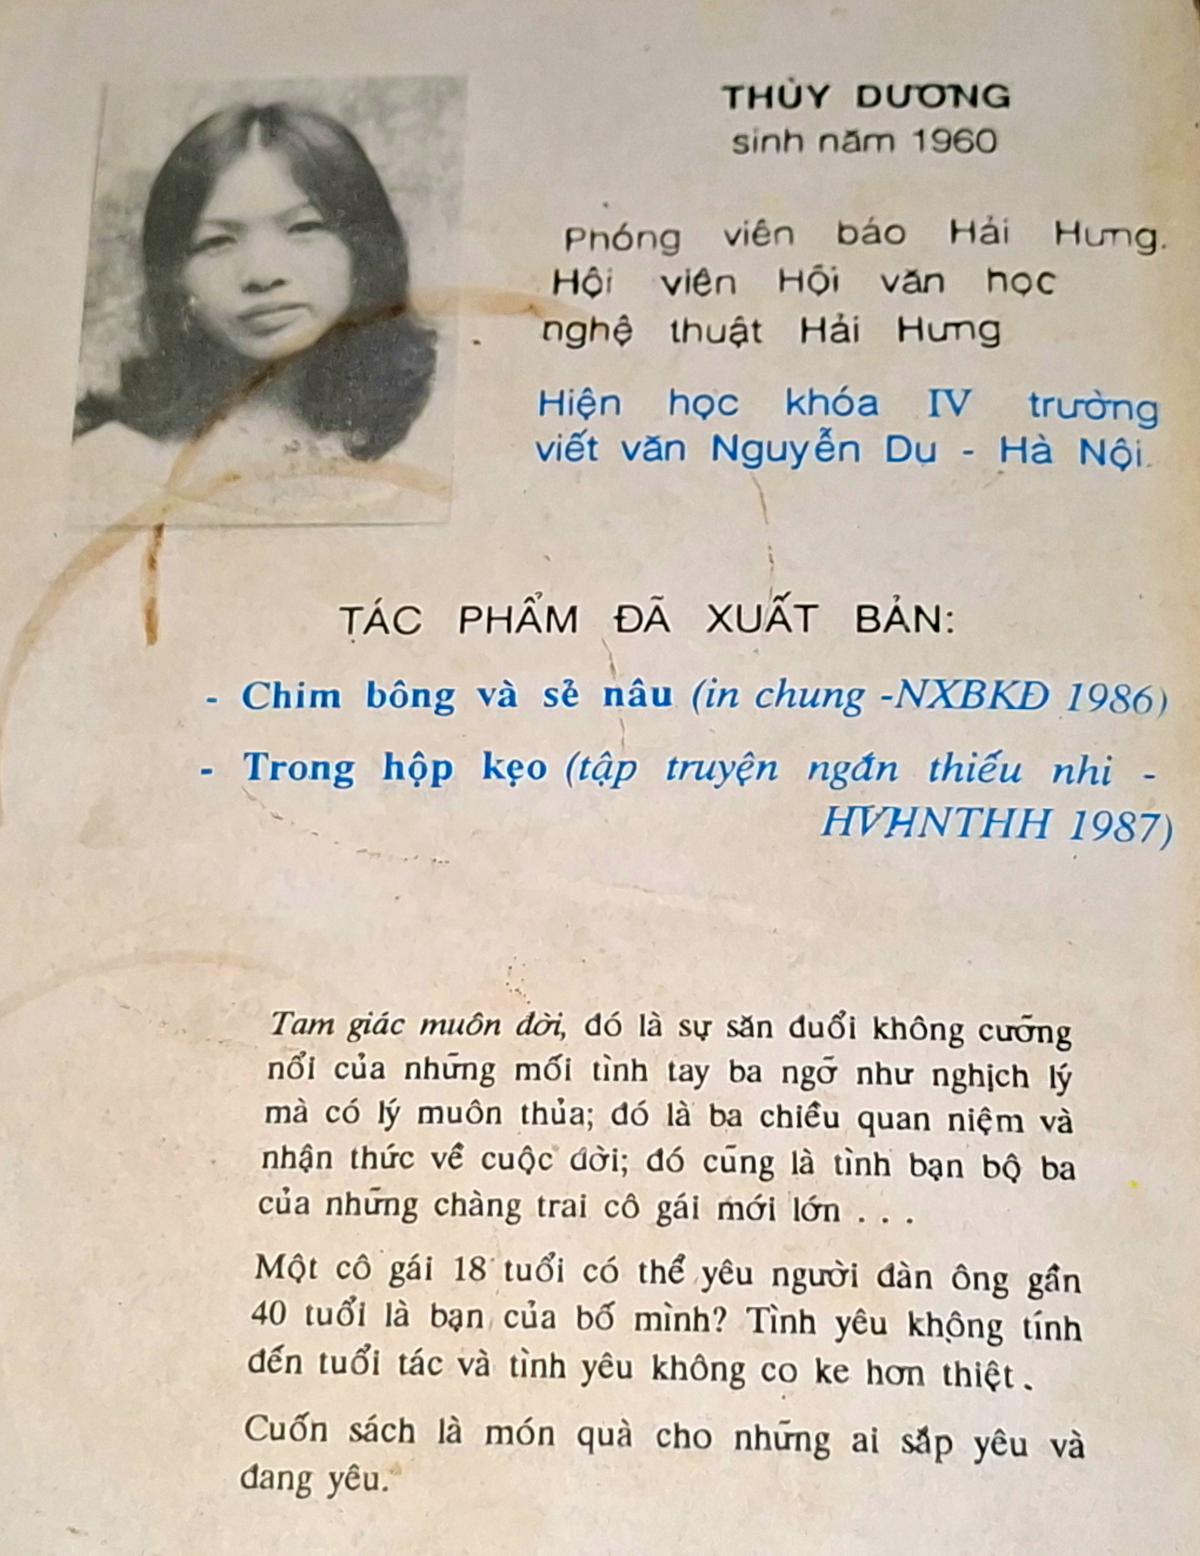 THÙY DƯƠNG
sinh năm 1960
Phóng viên báo Hải Hưng.
Hội viên Hội văn học
nghệ thuật Hải Hưng
Hiện học khóa IV trường
viết văn Nguyễn Du - Hà Nội.
TÁC PHẨM ĐÃ XUẤT BẢN:
- Chim bông và sẻ nâu (in chung -NXBKĐ 1986)
- Trong hộp kẹo (tập truyện ngắn thiếu nhi -
HVHNTHH 1987)
Tam giác muôn đời, đó là sự săn đuổi không cưỡng
nổi của những mối tình tay ba ngỡ như nghịch lý
mà có lý muôn thủa; đó là ba chiều quan niệm và
nhận thức về cuộc đời; đó cũng là tình bạn bộ ba
của những chàng trai cô gái mới lớn . . .
Một cô gái 18 tuổi có thể yêu người đàn ông gần
40 tuổi là bạn của bố mình? Tình yêu không tính
đến tuổi tác và tình yêu không co ke hơn thiệt.
Cuốn sách là món quà cho những ai sắp yêu và
đang yêu.